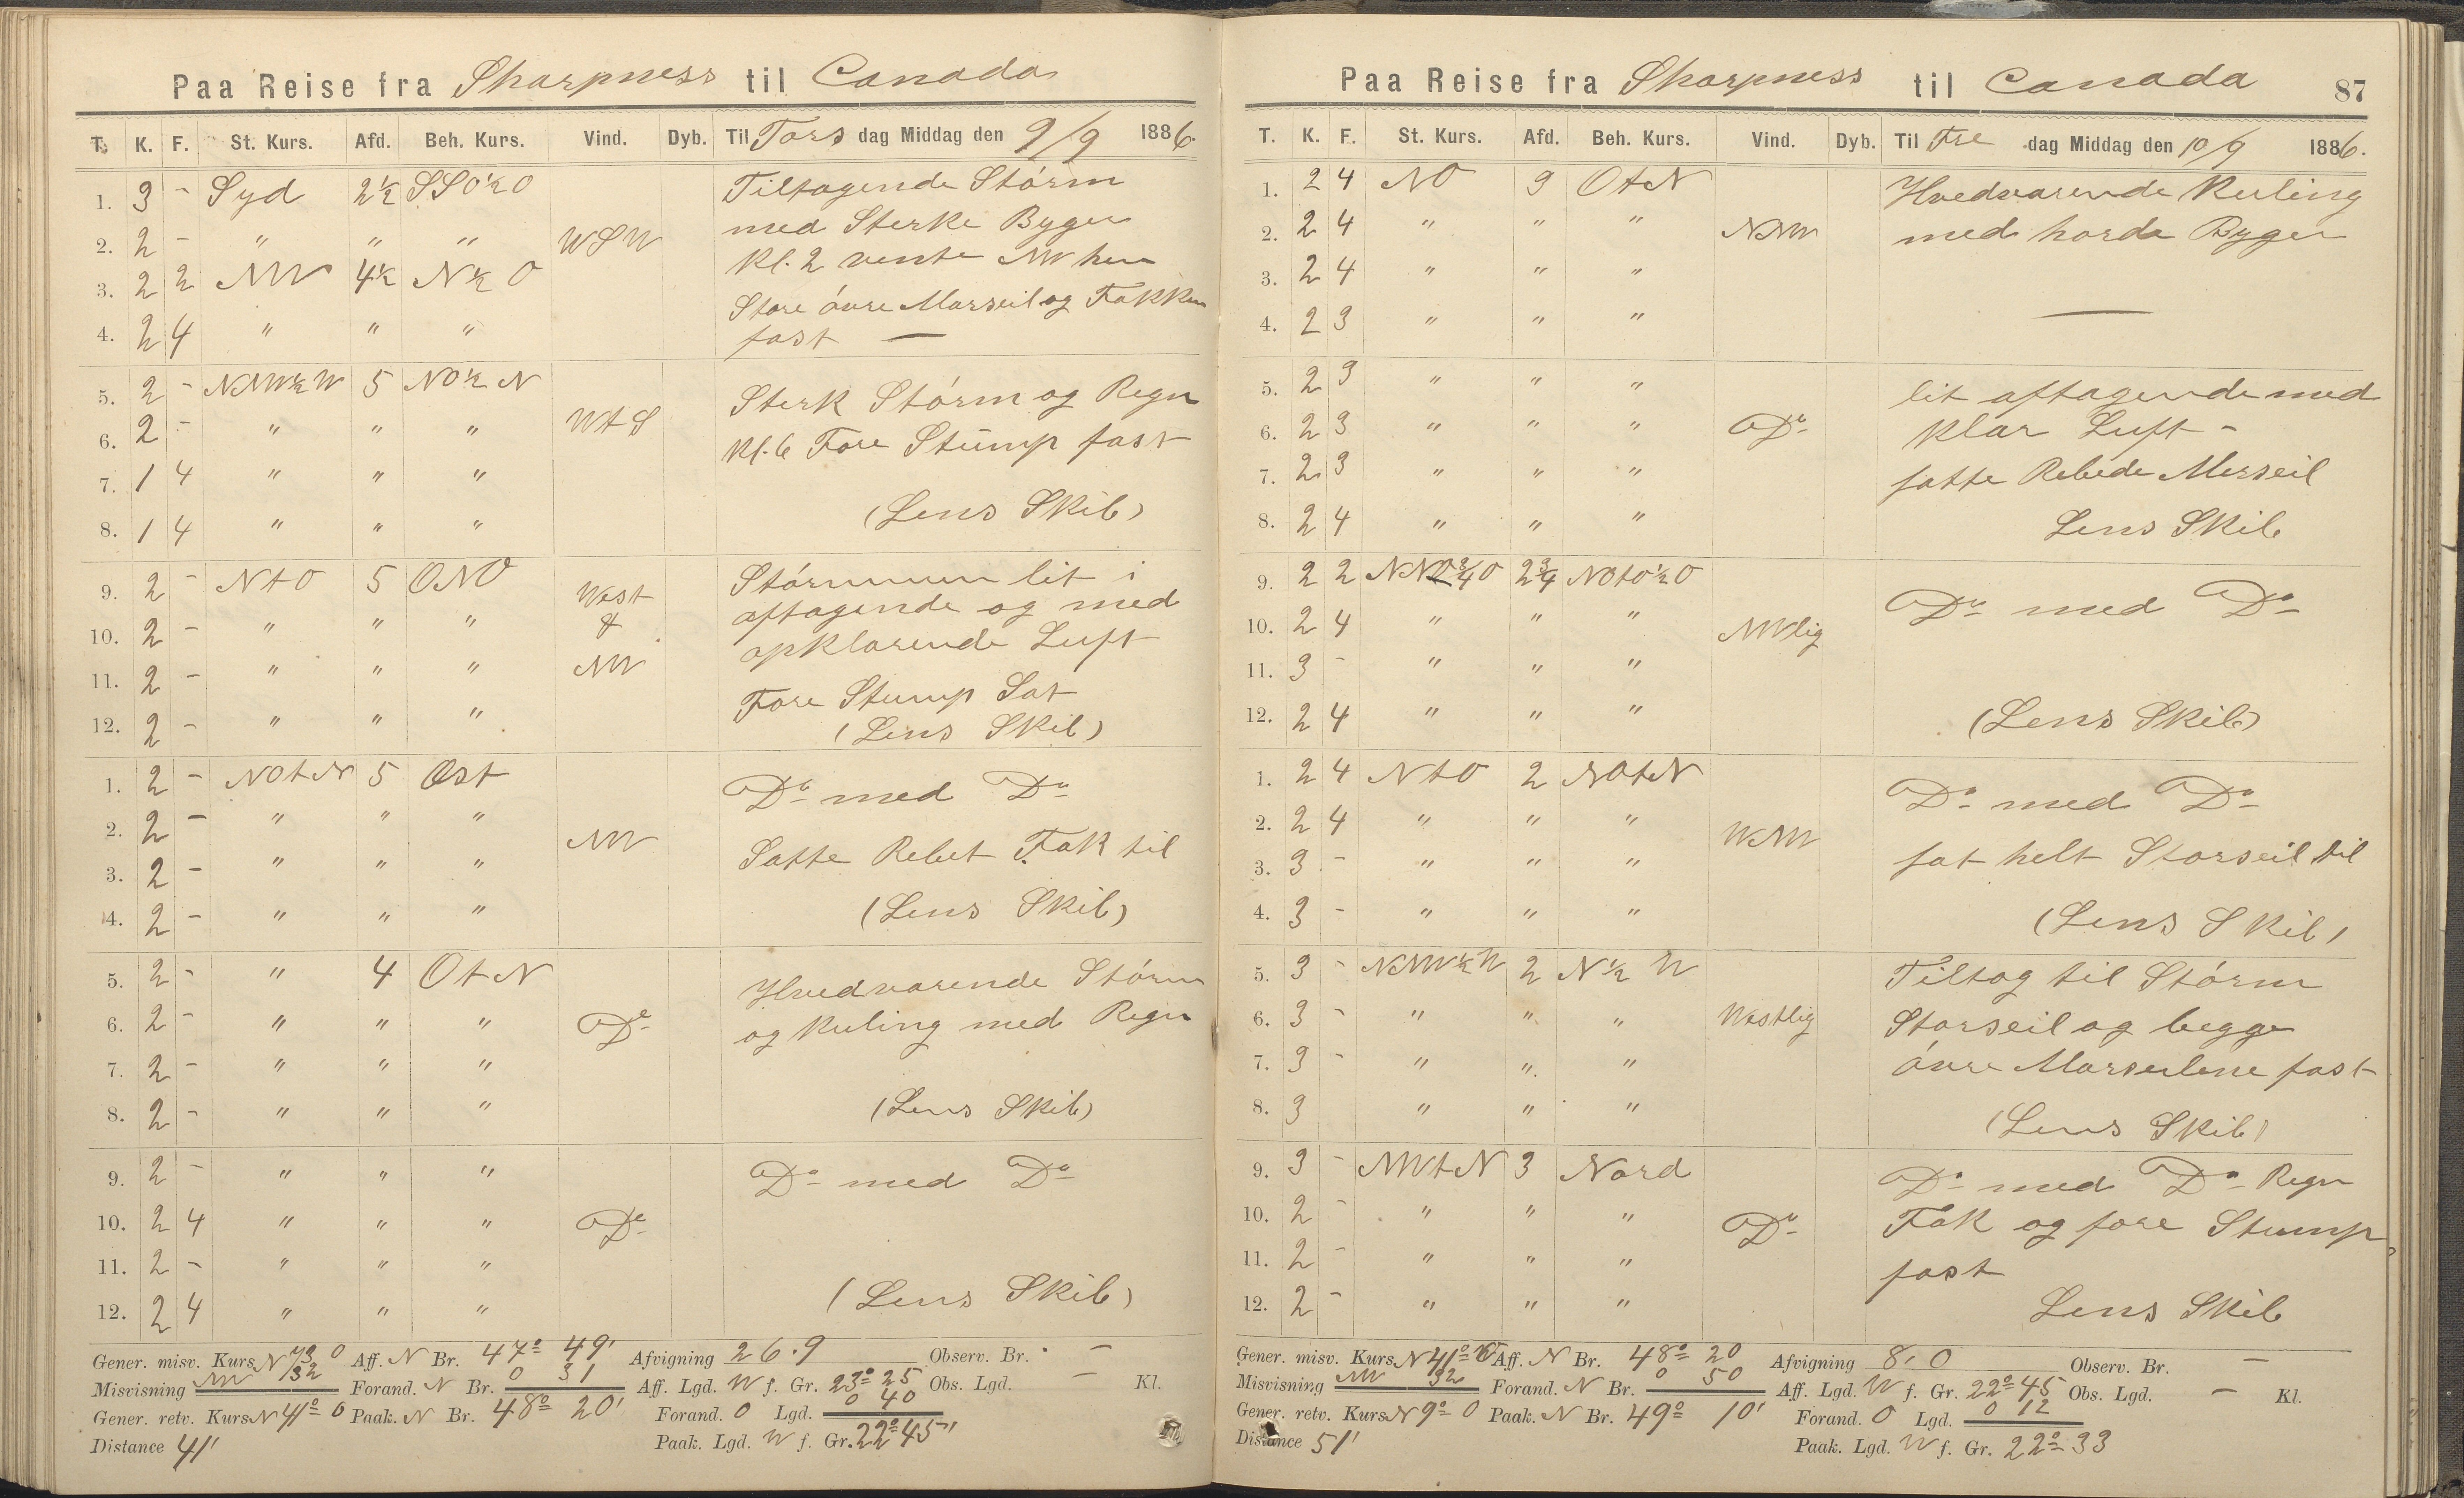 Paa Reise fra Sharpness til Canada
T. K. F. St. Kurs. Afd. Beh. Kurs. Vind. Dyb. Til Tors dag Middag den 9/9 1886.
1. 3 - Syd 2½ SSO½O Tiltagende Stórm
2. 2 - " " " WSW med Sterke Byger
3. 2 2 NW 4½ N½O Kl. 2 vente NW hen
Store óvre Marseil og Fokken
4. 2 4 " " " fast —
5. 2 - NNW½W 5 NO½N Sterk Stórm og Regn
6. 2 - " " " WtS Kl. 6 Fore Stúmp fast
7. 1 4 " " "
8. 1 4 " " " (Lens Skib)
9. 2 - NtO 5 ONO West Stórmmen lit i
10. 2 - " " " & aftagende og med
11. 2 - " " " NW opklarende Luft
Fore Stump Sat
12. 2 - " " " (Lens Skib)
1. 2 - NOtN 5 Ost Do med Do
2. 2 - " " " NW
3. 2 - " " " Satte Rebet Fok til
4. 2 - " " " (Lens Skib)
5. 2 - " 4 OtN Hvedvarende Stórm
6. 2 - " " " Do og Kuling med Regn
7. 2 - " " "
8. 2 - " " " (Lens Skib)
9. 2 - " " " Do med Do
10. 2 4 " " " Do
11. 2 - " " "
12. 2 4 " " " (Lens Skib)
Gener. misv. Kurs N 73 O Aff. N Br. 47° 49' Afvigning 26.9 Observ. Br. -
Misvisning NW 32 Forand. N Br. 0 31 Aff. Lgd. W f. Gr. 23° 25 Obs. Lgd. - Kl.
Gener. retv. Kurs N 41° O Paak. N Br. 48° 20' Forand. O Lgd. 0 40
Distance 41' Paak. Lgd. W f. Gr. 22° 45'
Paa Reise fra Sharpness til Canada 87
T. K. F. St. Kurs. Afd. Beh. Kurs. Vind. Dyb. Til Fre dag Middag den 10/9 1886.
1. 2 4 NO 3 OtN Hvedvarende Kuling
2. 2 4 " " " NNW med harde Byger
3. 2 4 " " "
4. 2 3 " " " —
5. 2 3 " " " lit aftagende med
6. 2 3 " " " Do klar Luft -
7. 2 3 " " " satte Rebede Merseil
8. 2 4 " " " Lens Skib
9. 2 2 NNO¾O 2¾ NOtO½O Do med Do
10. 2 4 " " " NWlig
11. 3 - " " "
12. 2 4 " " " (Lens Skib)
1. 2 4 NtO 2 NOtN Do med Do
2. 2 4 " " " WNW
3. 3 - " " " sat helt Storseil til
4. 3 - " " " (Lens Skib)
5. 3 - NNW½W 2 N½W Tiltog til Stórm
6. 3 - " " " Westlig Storseil og begge
7. 3 - " " " óvre Marseilene fast
8. 3 " " " (Lens Skib)
9. 3 - NWtN 3 Nord Do med Do Regn
10. 2 - " " " Do Fok og fore Stump
11. 2 - " " " fast
12. 2 - " " " Lens Skib
Gener. misv. Kurs N 41° O Aff. N Br. 48° 20 Afvigning 8,0 Observ. Br. —
Misvisning NW 32 Forand. N Br. 0 50 Aff. Lgd. W f. Gr. 22° 45 Obs. Lgd. - Kl.
Gener. retv. Kurs N 9° O Paak. N Br. 49° 10' Forand. O Lgd. 0 12
Distance 51' Paak. Lgd. W f. Gr. 22° 33